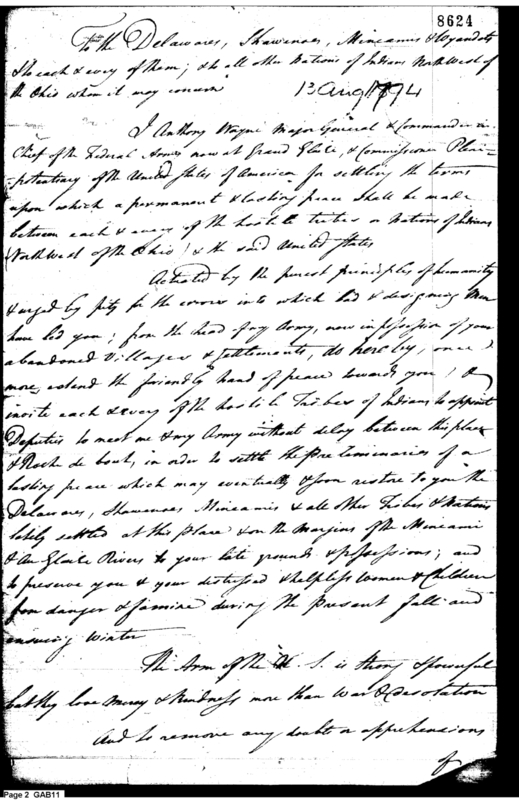 8624
To the Delawares, Shawenoes, Mineamis & Wyandots
& to each & every of them; & to all other Nations of Indians North West of
the Ohio whom it may concern
13 Aug 1794
I Anthony Wayne Major General & Commander in
Chief of the Federal Army now at Grand Glaize, & Commissioner Pleni-
potentiary of the United States of America for settling the terms
upon which a permanent & lasting peace shall be made
between each & every of the hostile tribes or Nations of Indians
(North West of the Ohio) & the said United States
Actuated by the purest principles of humanity
& urged by pity for the errors into which bad & designing Men
have led you; from the head of my Army, now in possession of your
abandoned Villages & settlements, do hereby, once
more, extend the friendly hand of peace towards you, &
invite each & every of the hostile Tribes of Indians to appoint
Deputies to meet me & my Army without delay between this place
& Roche de bout, in order to settle the preliminaries of a
lasting peace which may eventually & soon restore to you the
Delawares, Shawenoes Mineamis & all other Tribes & Nations
lately settled at this place & on the Margins of the Mineami
& Au Glaize Rivers to your late grounds & possessions; and
to preserve you & your distressed & helpless Women & Children
from danger & famine during the present fall and
ensuing Winter
The Arm of the U. S. is strong & powerful
but they love Mercy & kindness more than War & desolation
And to remove any doubts or apprehensions
of
Page 2 GAB11